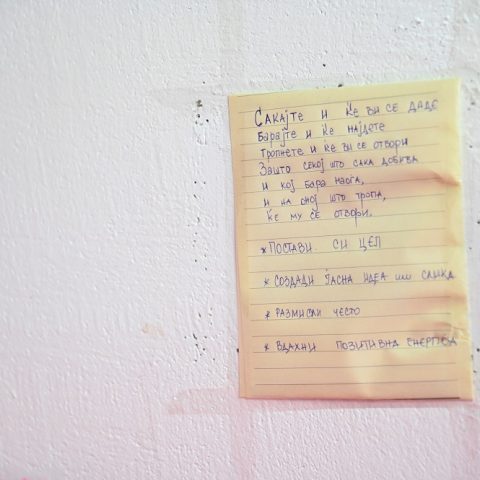 Сакајте и ќе ви се даде
Барајте и ќе најдете
Тропнете и ќе ви се отвори
Зашто секој што сака добива
и кој бара наоѓа,
и на оној што тропа,
ќе му се отвори.
* Постави си цел
* Создади јасна идеа или слика
* Размисли често
* Вдахни позитивна енергија